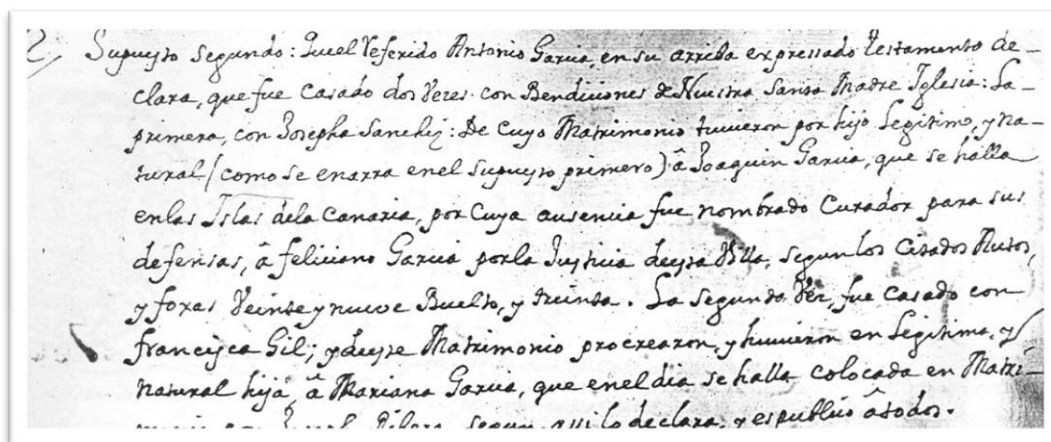 2, Supuesto Segundo: Que el Referido Antonio Garcia, en su arriba expressado testamento de-
clara, que fue Casado dos Veces con Bendiciones de Nuestra Santa Madre Iglesia: La
primera, con Josepha Sanchiz: De Cuyo Matrimonio tuvieron por hijo Legitimo, y na-
tural (como se enarra en el Supuesto primero) â Joaquin Garcia, que se halla
en las Islas de la Canaria, por Cuya ausencia fue nombrado Curador para sus
defensas, â feliciano Garcia por la Justicia de esta Villa, segun los Citados Autos,
y foxas Veinte y nueve Buelto, y treinta. La Segunda Vez, fue Casado con
francisca Gil; y de este Matrimonio procrearon, y huvieron en Legitima, y
natural hija, â Mariana Garcia, que en el dia se halla colocada en Matri-
segun lo declara, y es publico â todos.